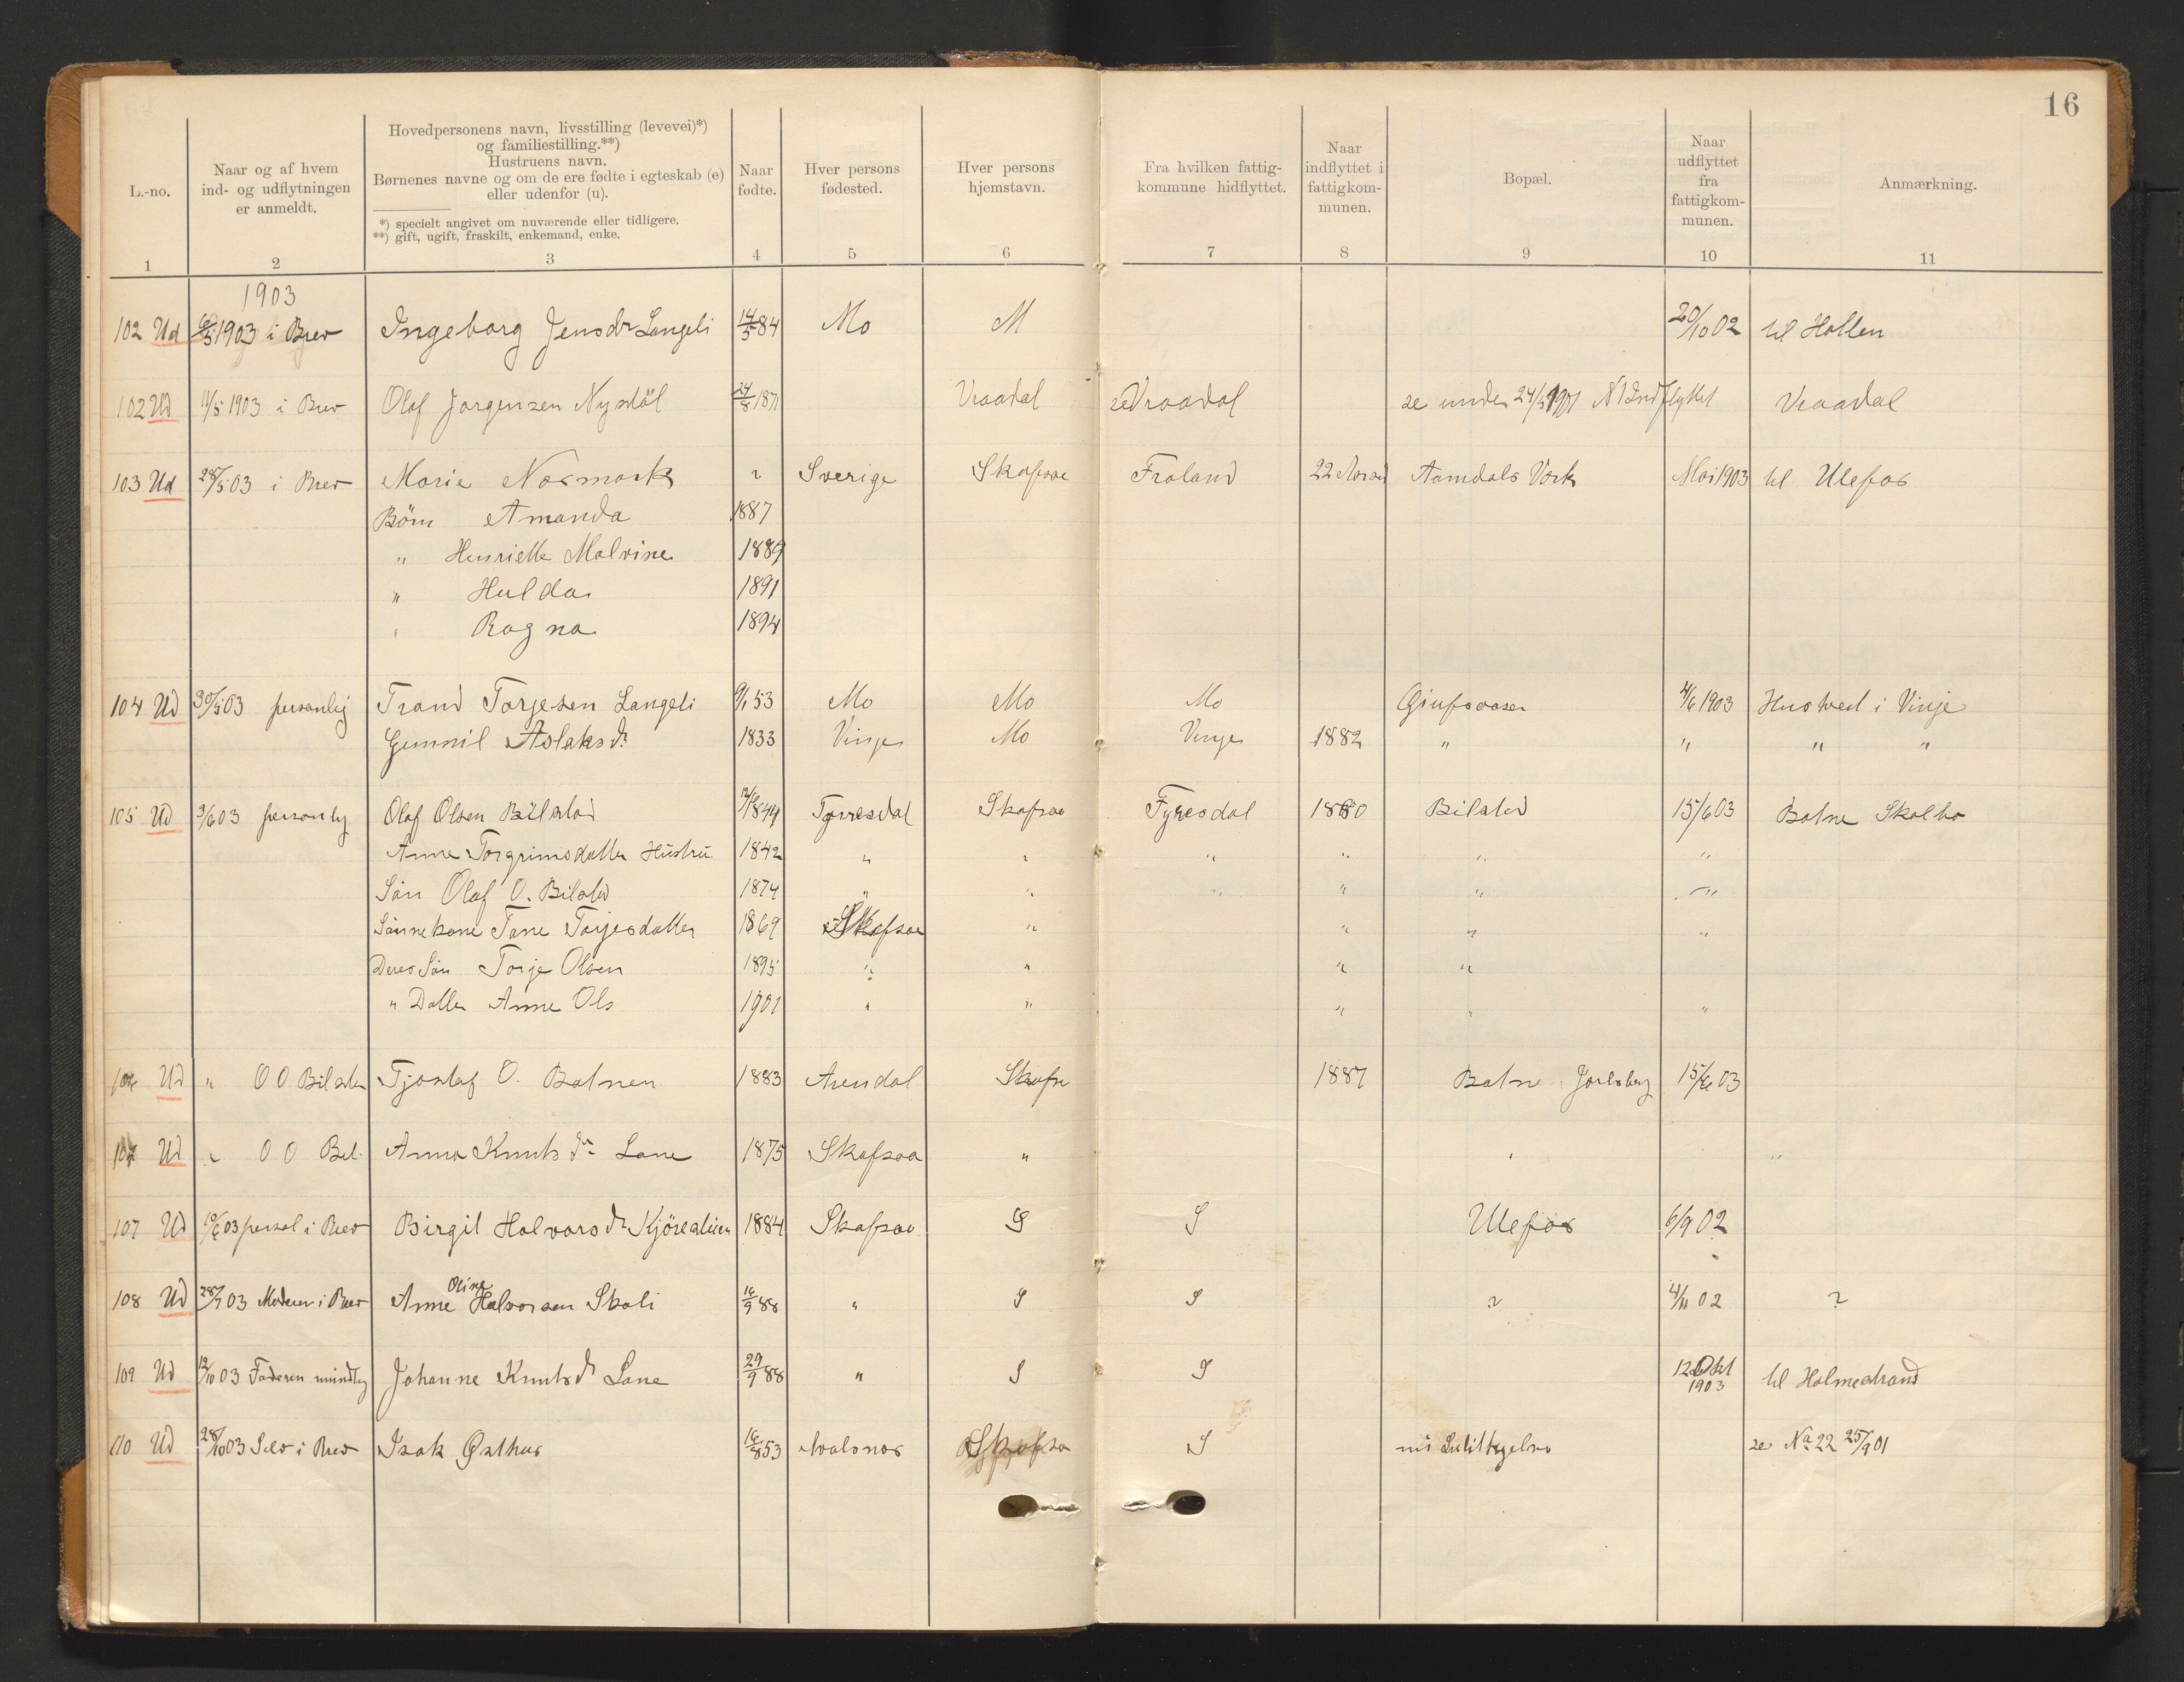 16
L.-no.
Naar og af hvem
ind- og udflytningen
er anmeldt.
Hovedpersonens navn, livsstilling (levevei)*)
og familiestilling.**)
Hustruens navn.
Børnenes navne og om de ere fødte i egteskab (e)
eller udenfor (u).
*) specielt angivet om nuværende eller tidligere.
**) gift, ugift, fraskilt, enkemand, enke.
Naar
fødte.
Hver persons
fødested.
Hver persons
hjemstavn.
Fra hvilken fattig-
kommune hidflyttet.
Naar
indflyttet i
fattigkom-
munen.
Bopæl.
Naar
udflyttet
fra
fattigkom-
munen.
Anmærkning.
1 2 3 4 5 6 7 8 9 10 11
1903
102 Ud 6/5 1903 i Brev Ingeborg Jensdr Langeli 14/5 84 Mo M 20/10 02 til Hollen
102 Ud 11/5 1903 i Brev Olaf Jørgensen Nystøl 24/8 1871 Vraadal se Vraadal se under 24/5 1901 N1 Indflyttet Vraadal
103 Ud 28/5 03 i Brev Marie Normark ? Sverige Skafsaa Froland 22 Aamdals Værk Mai 1903 til Ulefos
Børn Amanda 1887
" Henriette Malvine 1889
" Hulda 1891
" Ragna 1894
104 Ud 30/5 03 personlig Trond Torjesen Langeli 9/1 53 Mo Mo Mo 4/6 1903 Hustved i Vinje
Gunnil Aslaksdr 1833 Vinje Mo Vinje 1882 " " " "
105 Ud 3/6 03 personlig Olaf Olsen Bilstad 1844 Tyrresdal Skafsaa Fyresdal 1880 Bilstad 15/6 03 Botne Skolbo
Anne Torgrimsdatter Hustru 1842 " " " " " "
Søn Olaf O. Bilstad 1874 " " " " " "
Sønnekone Tone Torjesdatter 1869 Skafsaa " " " "
Deres Søn Torje Olsen 1895 " " " "
" Datter Anne Ols 1901 " " " " "
106 Ud " O O Bilstad Tjostaf O. Botnen 1883 Arendal Skafs 1887 Botne Jarlsberg 15/6 03
107 Ud " O O Bil. Anna Knutsdr Lane 1875 Skafsaa " " "
107 Ud 10/6 03 persol i Brev Birgit Halvorsdr 1884 Skafsaa S S Ulefos 6/9 02
108 Ud 28/7 03 Moderen i Brev Anne Oline Halvorsen Skoli 16/9 88 " S S ? 4/11 02 ?
109 Ud 12/10 03 Faderen mundtlig Johanne Knutsdr Lane 29/9 88 " S S 12 Okt 1903 til Holmestrand
110 Ud 28/10 03 Selv i Brev Isak Østhus 16/8 53 Skafsaa S nu se No 22 25/9 01